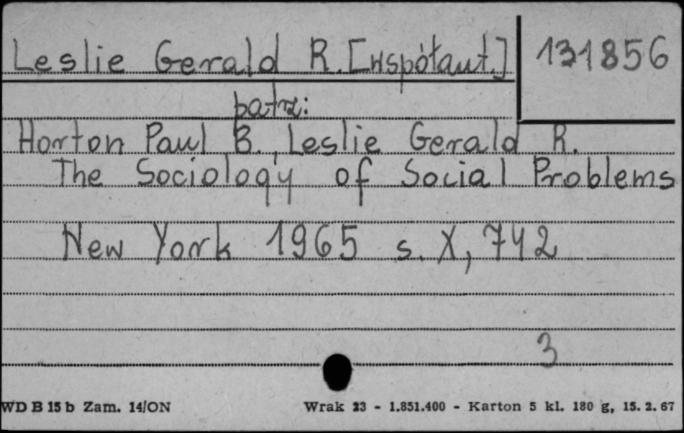 Leslie Gerald R. [współaut.] 131856
patrz:
Horton Paul B., Leslie Gerald R.
The Sociology of Social Problems
New York 1965 s. X, 742
3
WD B 15 b Zam. 14/ON Wrak 23 - 1.851.400 - Karton 5 kl. 180 g, 15. 2. 67